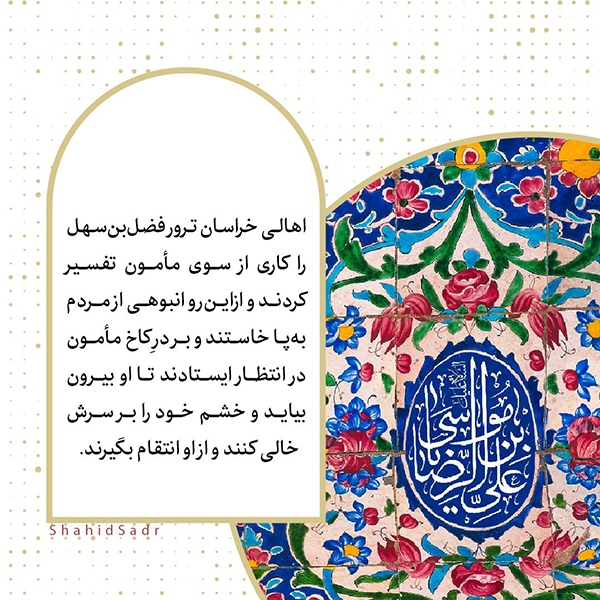 اهالی خراسان ترور فضل‌بن‌سهل
را کاری از سوی مأمون تفسیر
کردند و ازاین‌رو انبوهی از مردم
به‌پا خاستند و بر درِ کاخ مأمون
در انتظار ایستادند تا او بیرون
بیاید و خشم خود را بر سرش
خالی کنند و از او انتقام بگیرند.
ShahidSadr
علي بن موسی الرضا